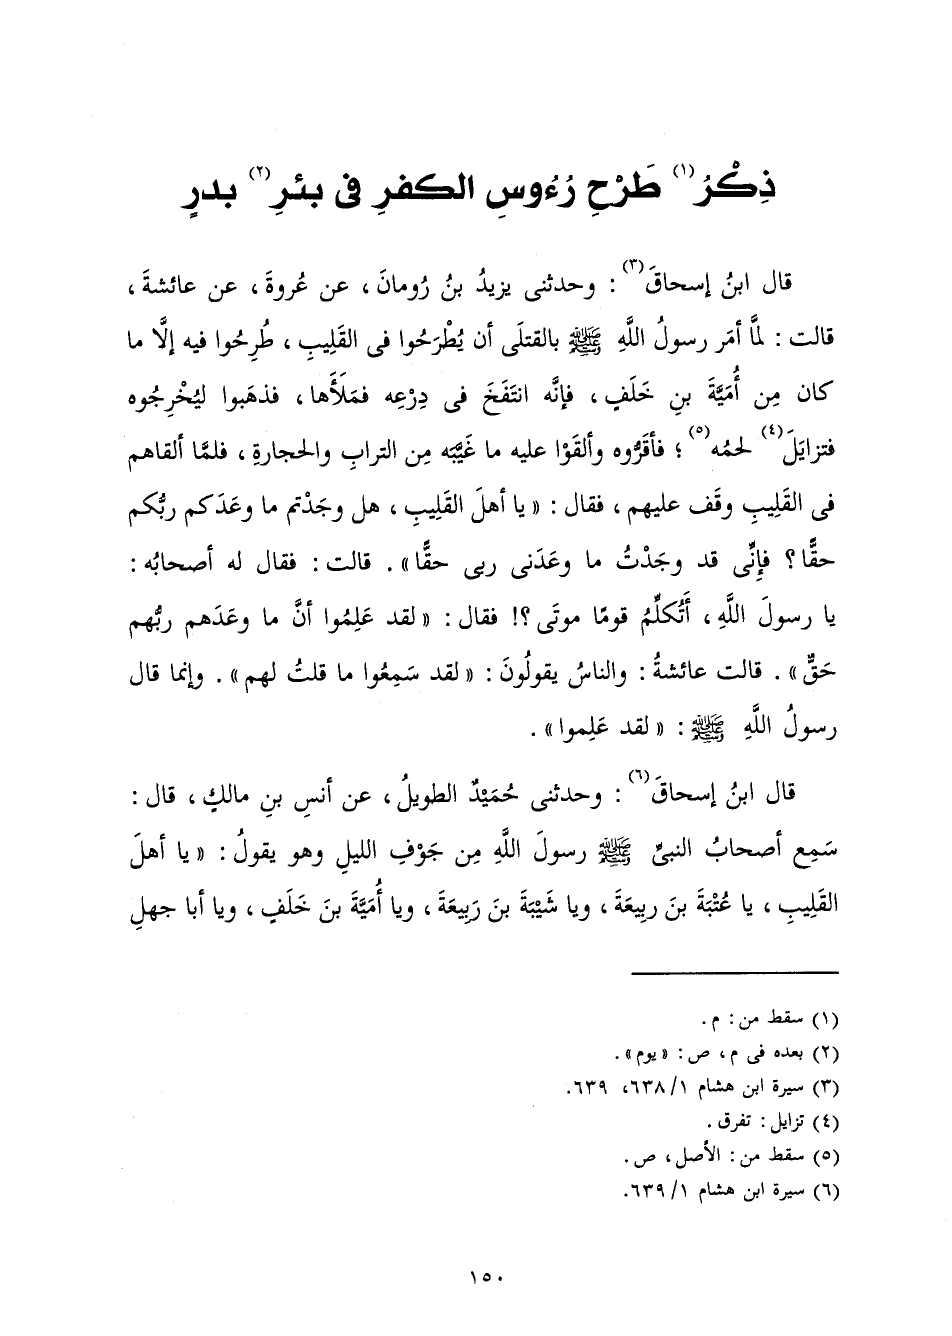 ذِكْرُ(١) طَرْحِ رُءُوسِ الكفرِ فى بئرِ(٢) بدرٍ
قال ابنُ إسحاقَ(٣) : وحدثنى يزيدُ بنُ رُومانَ ، عن عُروةَ ، عن عائشةَ ،
قالت : لمَّا أمَر رسولُ اللَّهِ ﷺ بالقتلَى أن يُطْرَحُوا فى القَلِيبِ ، طُرِحُوا فيه إلَّا ما
كان مِن أُمَيَّةَ بنِ خَلَفٍ ، فإنَّه انتَفَخَ فى دِرْعِه فمَلَأَها ، فذهَبوا ليُخْرِجُوه
فتزايَلَ(٤) لحمُه(٥) ؛ فأقَرُّوه وألقَوْا عليه ما غَيَّبَه مِن الترابِ والحجارةِ ، فلمَّا ألقاهم
فى القَلِيبِ وقَف عليهم ، فقال : « يا أهلَ القَلِيبِ ، هل وجَدْتم ما وعَدَكم ربُّكم
حقًّا ؟ فإنِّى قد وجَدْتُ ما وعَدَنى ربى حقًّا » . قالت : فقال له أصحابُه :
يا رسولَ اللَّهِ ، أَتُكلِّمُ قومًا موتَى ؟! فقال : « لقد عَلِمُوا أنَّ ما وعَدَهم ربُّهم
حَقٌّ » . قالت عائشةُ : والناسُ يقولُونَ : « لقد سَمِعُوا ما قلتُ لهم » . وإنما قال
رسولُ اللَّهِ ﷺ : « لقد عَلِموا » .
قال ابنُ إسحاقَ(٦) : وحدثنى حُمَيْدٌ الطويلُ ، عن أنسِ بنِ مالكٍ ، قال :
سَمِع أصحابُ النبىِّ ﷺ رسولَ اللَّهِ مِن جَوْفِ الليلِ وهو يقولُ : « يا أهلَ
القَلِيبِ ، يا عُتْبَةَ بنَ ربِيعَةَ ، ويا شَيْبَةَ بنَ رَبِيعَةَ ، ويا أُمَيَّةَ بنَ خَلَفٍ ، ويا أبا جهلِ
(١) سقط من : م .
(٢) بعده فى م ، ص : « يوم » .
(٣) سيرة ابن هشام ١/ ٦٣٨، ٦٣٩.
(٤) تزايل : تفرق .
(٥) سقط من : الأصل ، ص .
(٦) سيرة ابن هشام ١/ ٦٣٩.
١٥٠